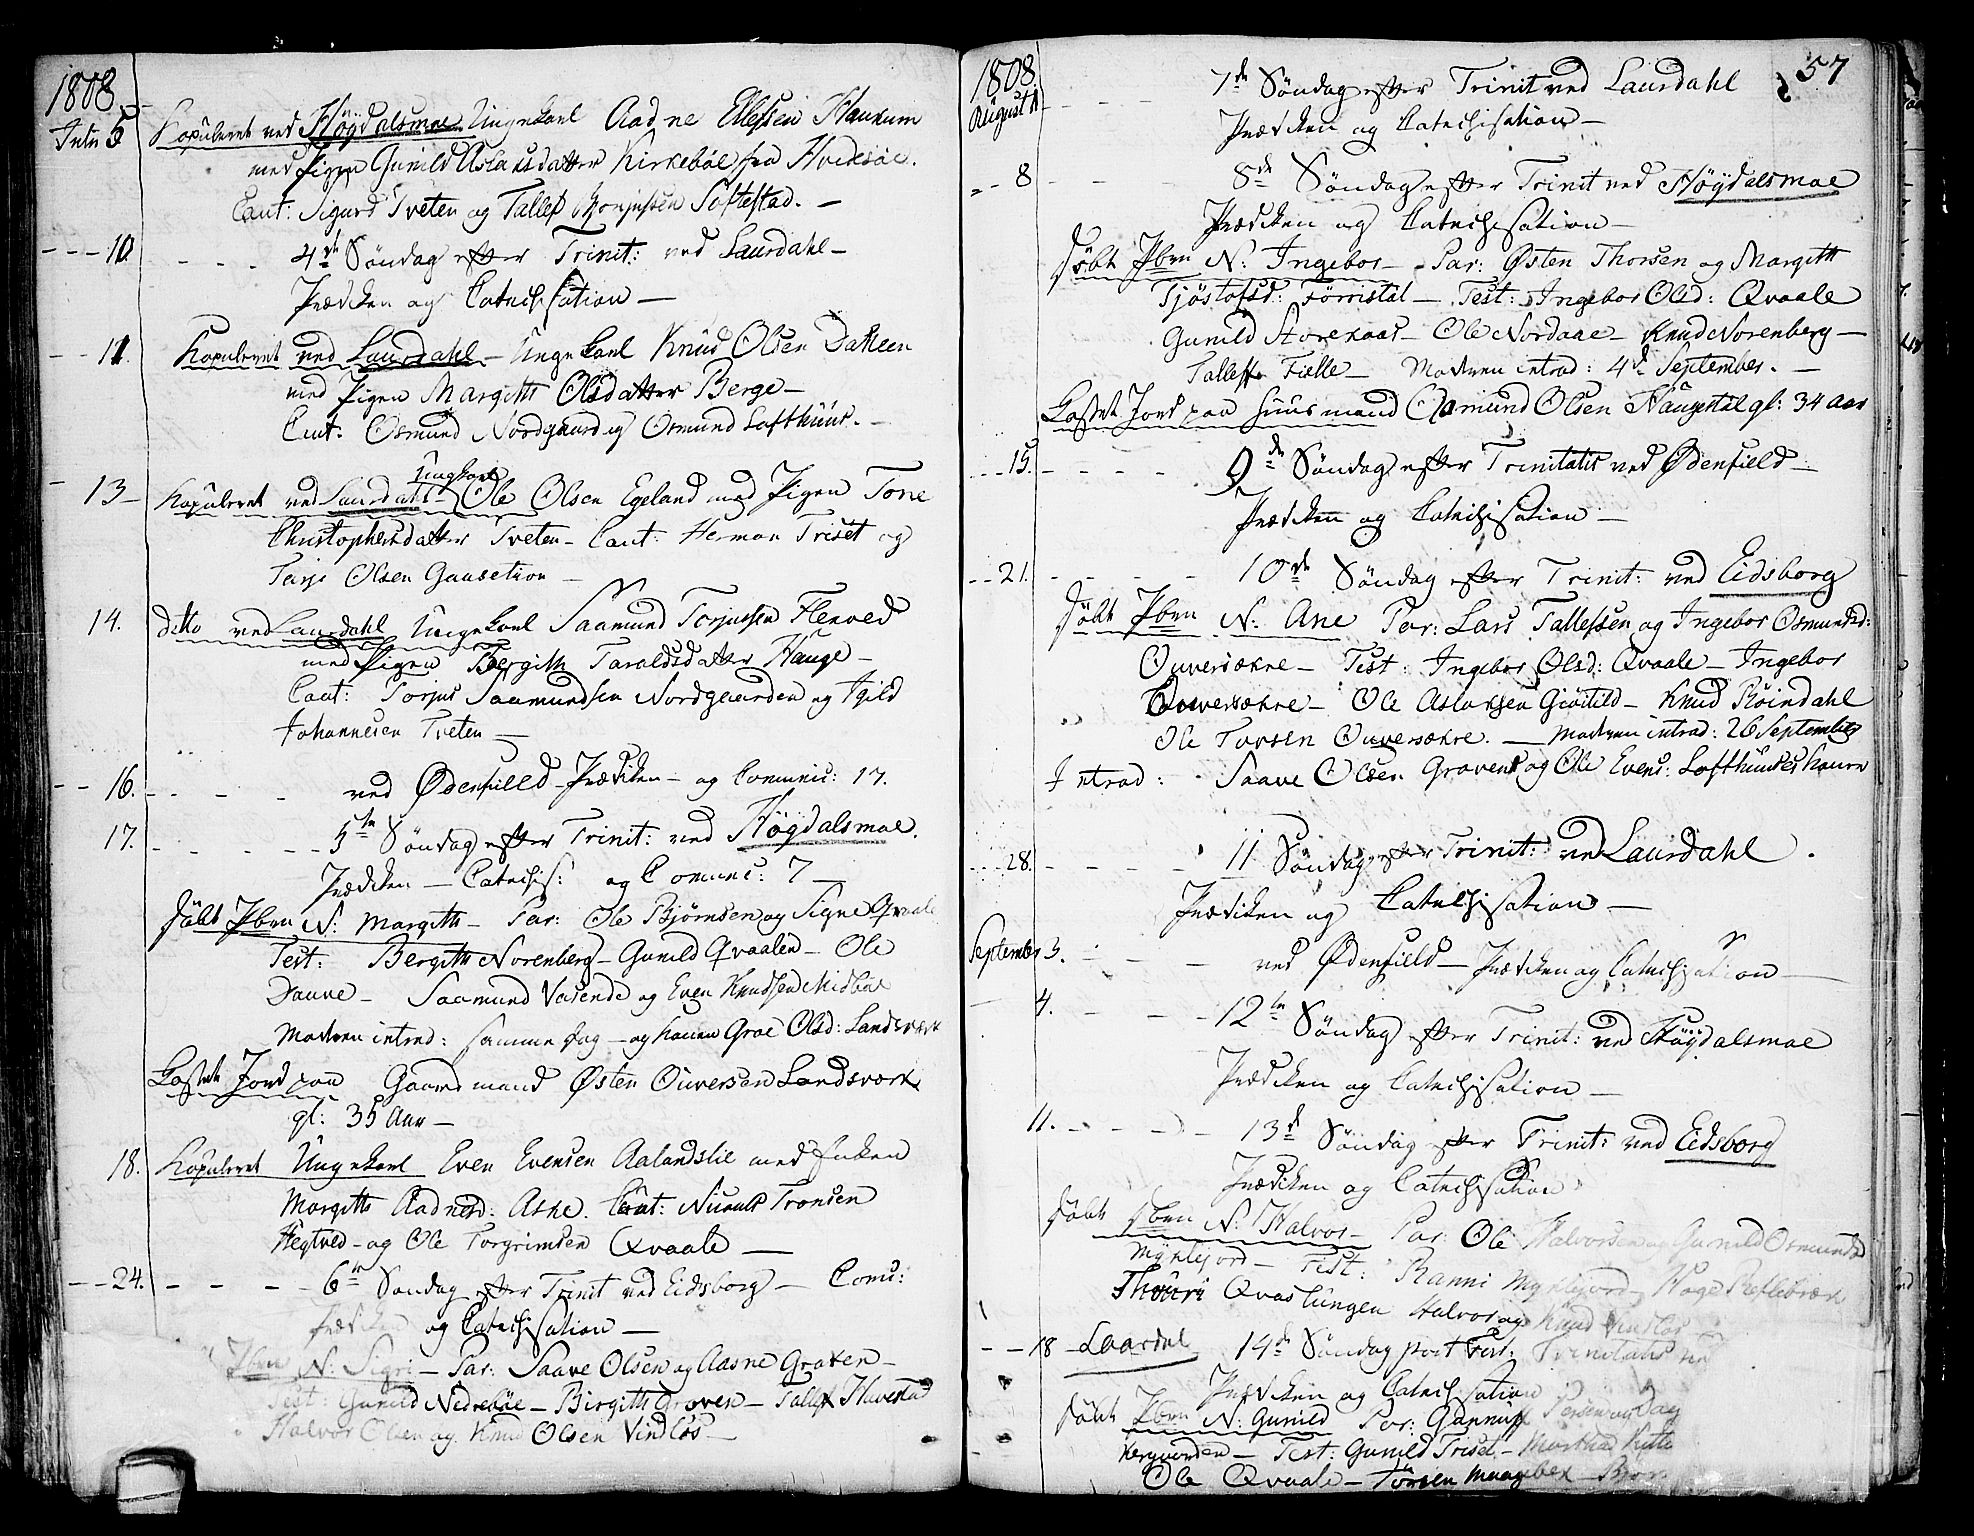 1808
Julii 5 Kopuleret ved Høÿdalsmoe Ungekarl Aadne Ellefsen Haukum
med Pigen Gunild Aslaksdatter Kirkebøe fra Hvidesøe.
Caut: Sigurd Tveten og Tallef Bjornsen Softestad. —
- - - 10. - - - 4de Søndag efter Trinit: ved Laurdahl —
Prædiken og Catechisation —
- - 11. Kopuleret ved Laurdahl — Ungekarl Knud Olsen Dahleen
med Pigen Margith Olsdatter Berge —
Caut. Osmund Nordgaard og Osmund Lofthuus. —
- 13 — Kopuleret ved Laurdahl — Ungkarl Ole Olsen Egeland med Pigen Tone
Christophersdatter Tveten — Caut: Herman Triset og
Terje Olsen Gaasetion —
14. ditto ved Laurdahl Ungekarl Saamund Torjussen Flenved
med Pigen Bergith Taraldsdatter Hauge —
Caut: Torjus Saamundsen Nordgaarden og
Johannesen Tveten —
- - 16. - - - - ved Ødenfield Prædiken — og Comunic: 17.
17. - - - - - 5te Søndag efter Trinit: ved Høydalsmoe.
Prædiken — Catechis: og Comunic: 7 —
døbt Pbrn N: Margith — Par: Ole Bjørnsen og Signe Qvaale
Test: Bergith Norenberg — Gunild Qvaalen — Ole
Dauve — Saamund Vasende og Even Knudsen Midbøe
Modren introd: samme dag — og konen Groe Olsd: Landsværk
Kastet Jord paa Gaardmand Østen Ouversen Landsværk
gl: 35 Aar —
18. Kopuleret Ungekarl Even Evensen Aalandslie med Enken
Margith Aadnesd: Aske. Caut: Tronsen
Hegtved — og Ole Torgrimsen Qvaale —
- - 24. - - - - 6te Søndag efter Trinit ved Eidsborg — Comu:
Prædiken og Catechisation —
Pbrn N: Sigri — Par: Saave Olsen og Aasne Graven —
Test: Gunild Nedrebøe — Birgith Graven — Tallef Havestad
Halvor Olsen og Knud Olsen Vindlos —
57
1808
August - - - 7de Søndag efter Trinit ved Laurdahl
Prædiken og Catechisation —
- - 8 - - - 8de Søndag efter Trinit ved Høÿdalsmoe
Prædiken og Catechisation —
døbt Pbrn N: Ingebor — Par: Østen Thorsen og Margith
Tjøstofsd: — Test: Ingebor Olsd: Qvaale
Gunild Storekaas — Ole Nordaae — Knud Norenberg —
Tallef Fielle — Modren introd: 4de September. —
Kastet Jord paa Huusmand Osmund Olsen Haugestøl gl: 34 Aar
- - 15. - - - - 9de Søndag efter Trinitatis ved Ødenfield —
Prædiken og Catechisation —
- - 21. - - - - 10de Søndag efter Trinit: ved Eidsborg
døbt Pbrn N: Ane Par: Lars Tallefsen og Ingebor Osmundsd:
Ouversækre — Test: Ingebor Olsd: Qvaale — Ingebor
Ouversækre — Ole Aslaksen — Knud Røindahl
Ole Torsen Ouversækre. — Modren introd: 26 September
Introd: Saave Olsen Gravens og Ole Evens: Lofthuuses koner
- - 28. - - - - 11 Søndag efter Trinit: ved Laurdahl.
Prædiken og Catechisation —
September 3. - - - ved Ødenfield — Prædiken og Catechisation —
4. - - - - 12te Søndag efter Trinit: ved Høÿdalsmoe
Prædiken og Catechisation —
11. - - - - 13de Søndag efter Trinit: ved Eidsborg
Prædiken og Catechisation
døbt dbrn N: Halvor — Par: Ole Halvorsen og Gunild Osmundsd
Myklejord — Test: Ranni Myklejord — Hage
Thouri Halvor og Knud Vindlos
- - 18 — Laardal 14de Søndag post Fest: Trinitatis
Prædiken og Catechisation
døbt Pbrn N: Gunild Par: Gunnuf
— Test: Gunild Triset —
Ole Qvaale —